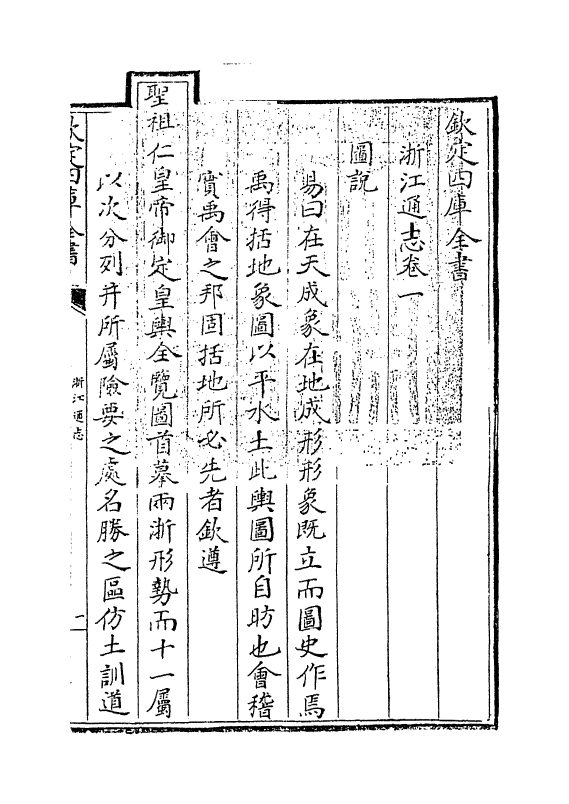 欽定四庫全書
浙江通志卷一
圖說
易曰在天成象在地成形形象既立而圖史作焉
禹得括地象圖以平水土此輿圖所自昉也會稽
實禹會之邦固括地所必先者欽遵
聖祖仁皇帝御定皇輿全覽圖首摹兩浙形勢而十一屬
以次分列并所屬險要之處名勝之區仿土訓道
欽定四庫全書
浙江通志